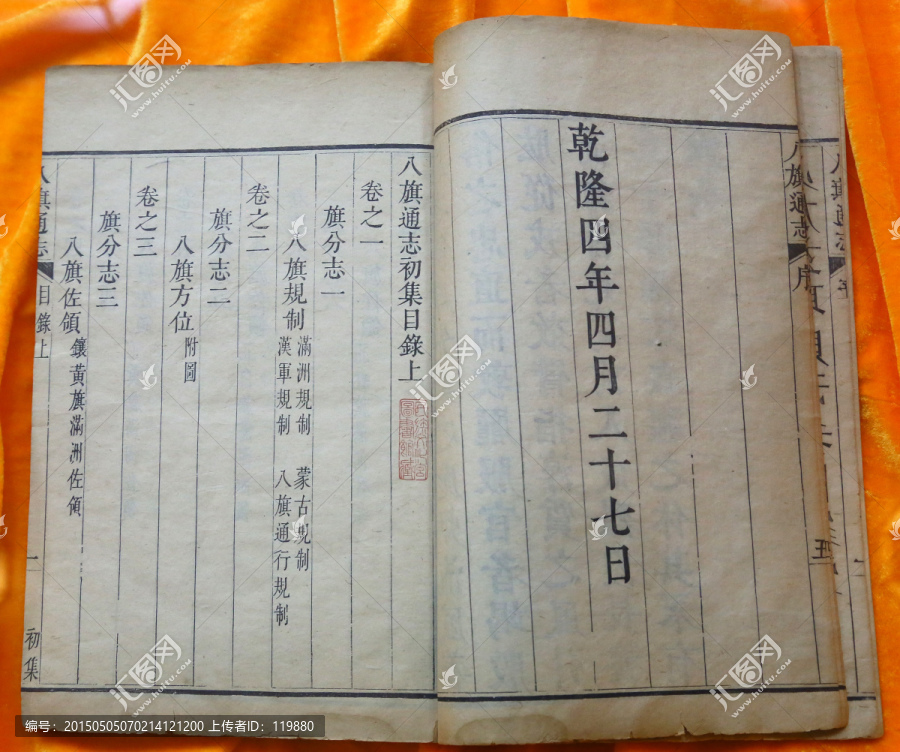 乾隆四年四月二十七日
八旗通志
序
八旗通志初集目錄上
卷之一
旗分志一
八旗規制
滿洲規制
蒙古規制
漢軍規制
八旗通行規制
卷之二
旗分志二
八旗方位
附圖
卷之三
旗分志三
八旗佐領
鑲黃旗滿洲佐領
八旗通志
目錄上
一
初集
汇图网
www.huitu.com
编号:20150505070214121200 上传者ID:119880